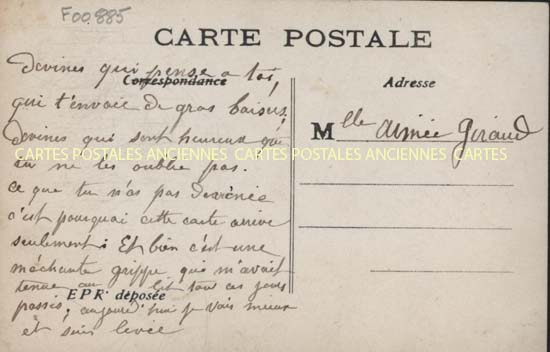 F00.885
CARTE POSTALE
Devines qui pense a toi,
Correspondance
qui t'envoie de gros baisers,
Devines qui sont heureux que
tu ne les oublie pas.
ce que tu n'as pas devinée
c'est pourquoi cette carte arrive
seulement. Et bien c'est une
méchante grippe qui m'avait
tenue au lit tout ces jours
passés, aujourd'hui je vais mieux
et suis levée
EPR déposée
Adresse
Mlle Aimée Giraud
CARTES POSTALES ANCIENNES CARTES POSTALES ANCIENNES CARTES